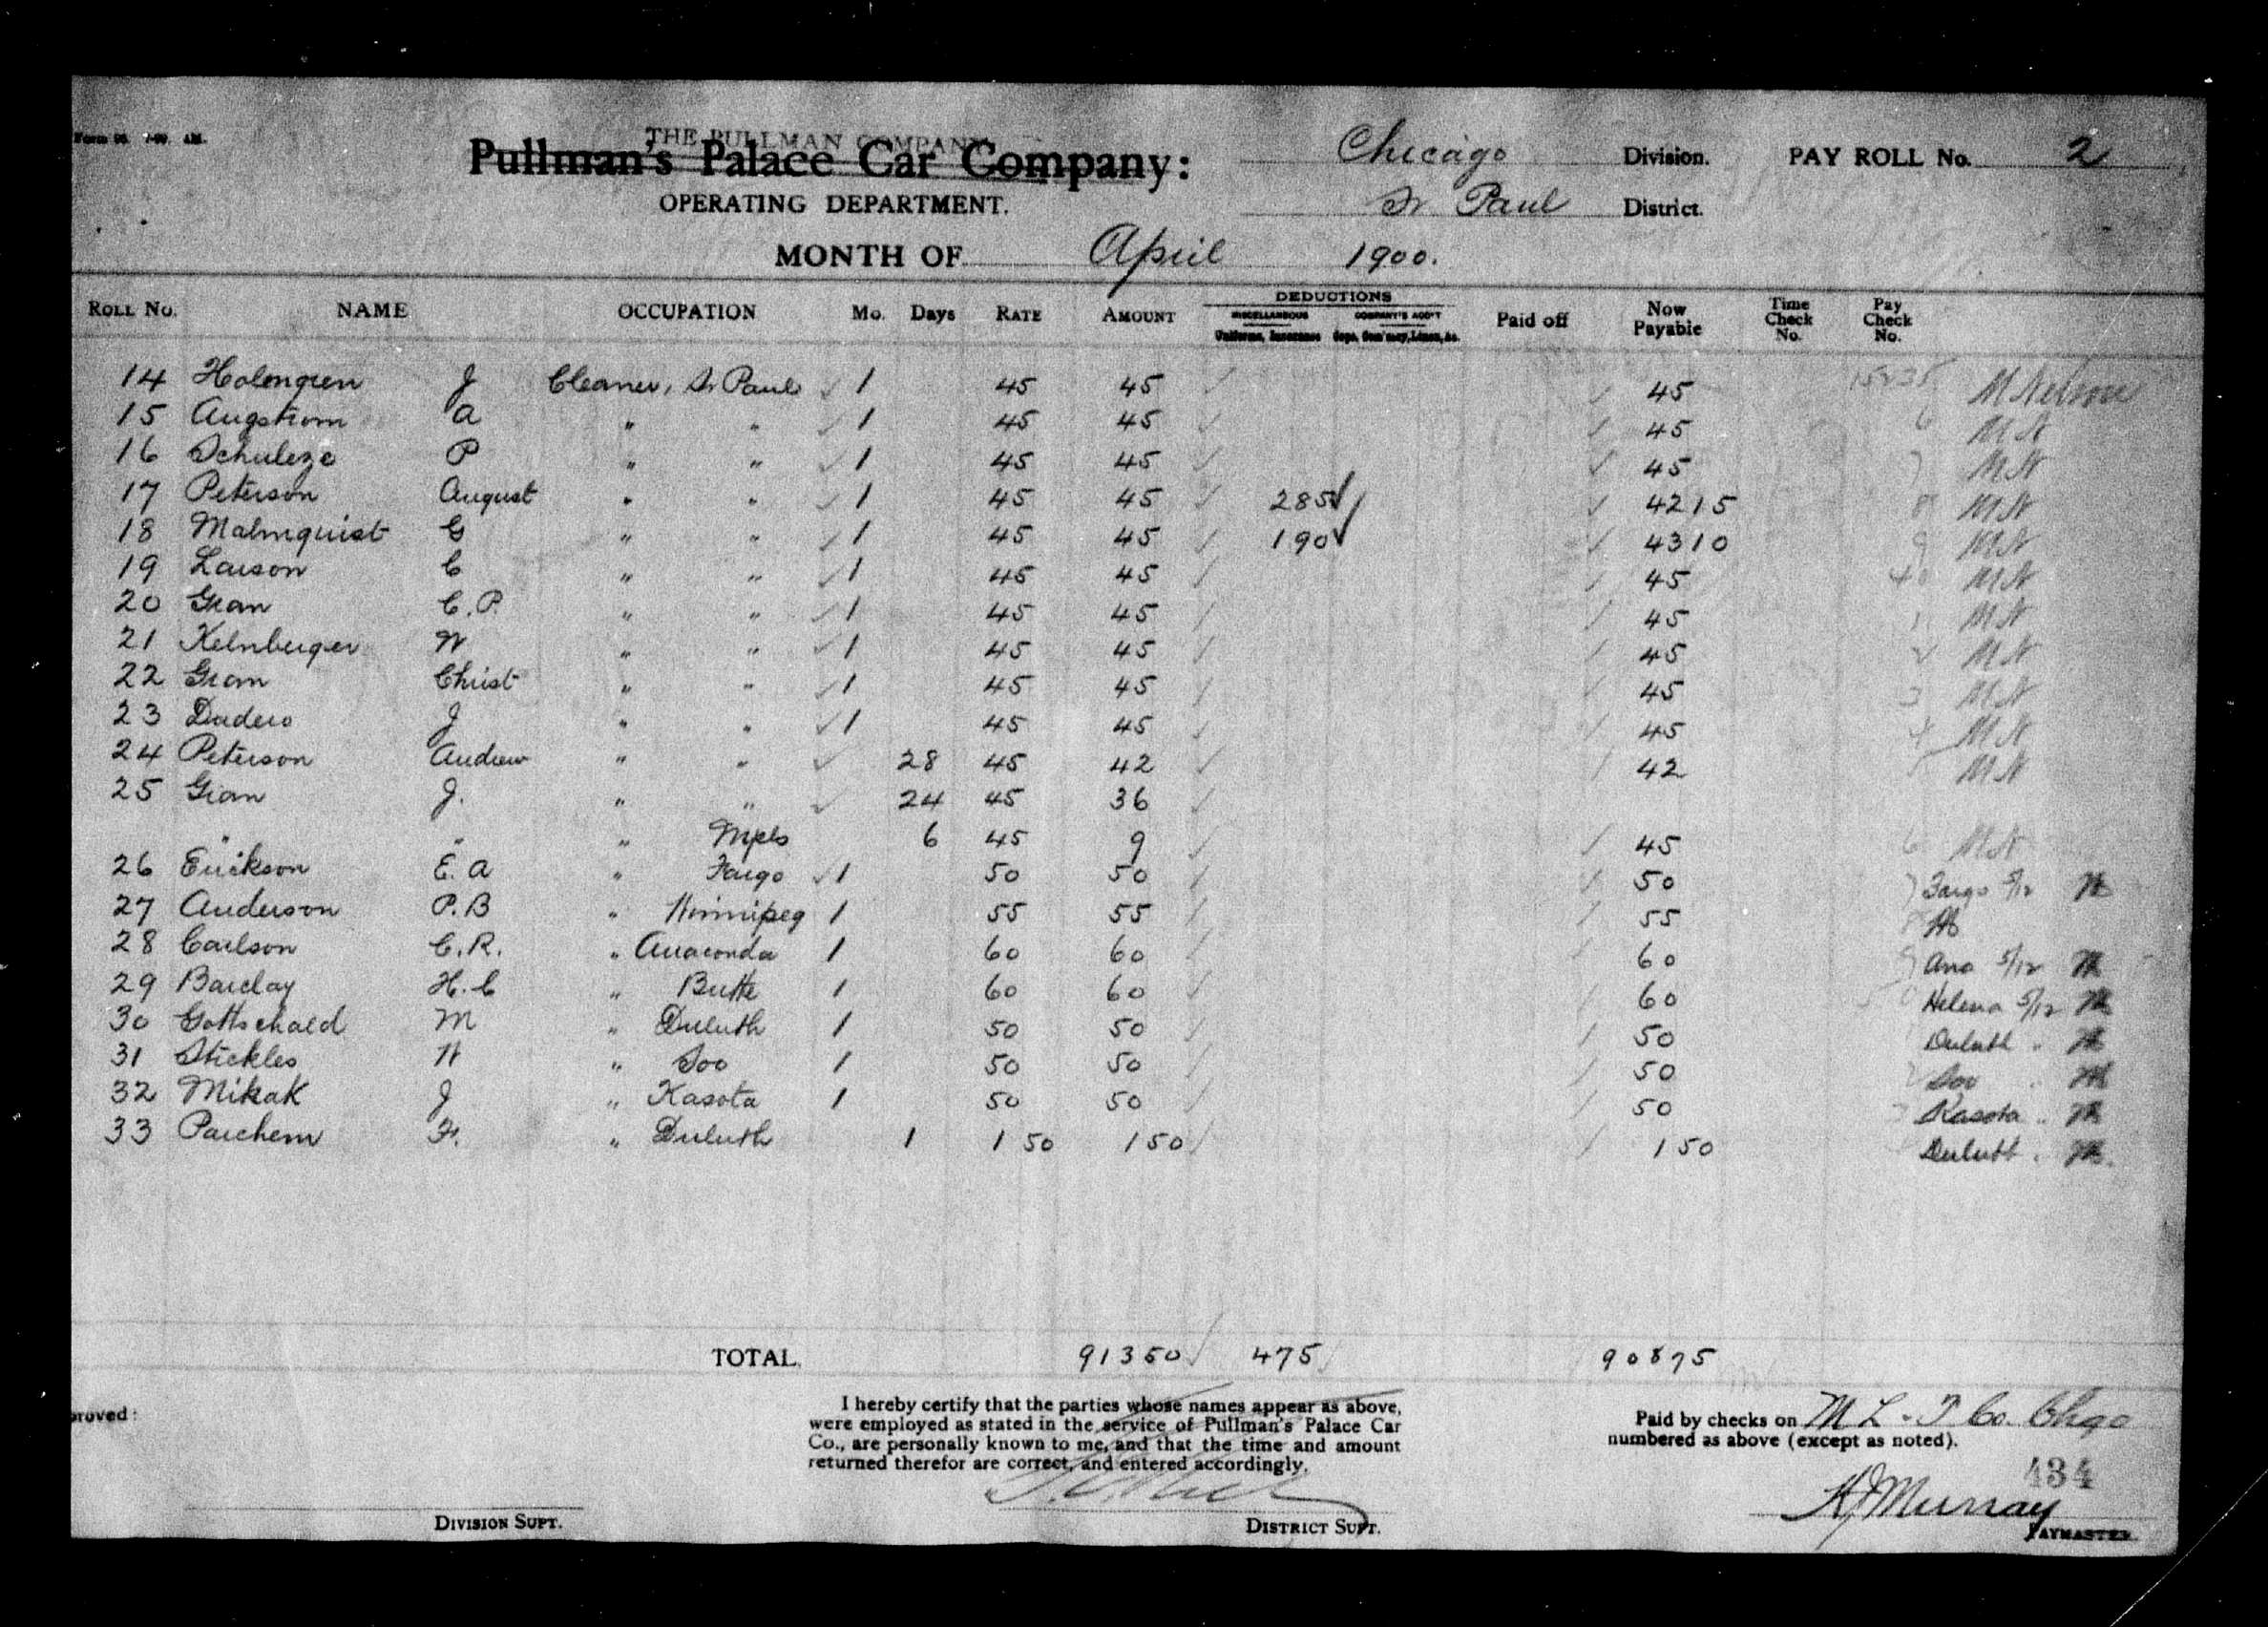 Form 96. 7-99. AM.
THE PULLMAN COMPANY
Pullman's Palace Car Company:
OPERATING DEPARTMENT.
Chicago Division. PAY ROLL No. 2
St Paul District.
MONTH OF April 1900.
ROLL No. NAME OCCUPATION Mo. Days RATE AMOUNT DEDUCTIONS MISCELLANEOUS Uniforms, Insurance COMPANY'S ACC'T Paid off Now Payable Time Check No. Pay Check No.
14 Holmgren J Cleaner, St Paul ✓ 1 45 45 ✓ ✓ 45 15835 M Nelson
15 Augstrom A " " ✓ 1 45 45 ✓ ✓ 45 6 M N
16 Schuleze P " " ✓ 1 45 45 ✓ ✓ 45 7 M N
17 Peterson August " " ✓ 1 45 45 ✓ 285 ✓ ✓ 4215 8 M N
18 Malmquist G " " ✓ 1 45 45 ✓ 190 ✓ ✓ 4310 9 M N
19 Larson C " " ✓ 1 45 45 ✓ ✓ 45 40 M N
20 Gran C. P. " " ✓ 1 45 45 ✓ ✓ 45 1 M N
21 Kelnberger W " " ✓ 1 45 45 ✓ ✓ 45 2 M N
22 Gran Christ " " ✓ 1 45 45 ✓ ✓ 45 3 M N
23 Dadero J " " ✓ 1 45 45 ✓ ✓ 45 4 M N
24 Peterson Andrew " " ✓ 28 45 42 ✓ ✓ 42 5 M N
25 Gran J. " " ✓ 24 45 36 ✓
" " " Mpls 6 45 9 ✓ ✓ 45 6 M N
26 Erickson E. A " Fargo ✓ 1 50 50 ✓ ✓ 50 7 Fargo 5/12
27 Anderson P. B " Winnipeg 1 55 55 ✓ ✓ 55 8
28 Carlson C. R. " Anaconda 1 60 60 ✓ ✓ 60 9 Ana 5/12
29 Barclay H. C " Butte 1 60 60 ✓ ✓ 60 50 Helena 5/12
30 Gottschald M " Duluth 1 50 50 ✓ ✓ 50 1 Duluth "
31 Stickles W " Soo 1 50 50 ✓ ✓ 50 2 Soo "
32 Mikak J " Kasota 1 50 50 ✓ ✓ 50 3 Kasota "
33 Parchem F. " Duluth 1 1 50 1 50 ✓ ✓ 1 50 Duluth "
TOTAL 91350 ✓ 475 ✓ 90875
proved:
I hereby certify that the parties whose names appear as above,
were employed as stated in the service of Pullman's Palace Car
Co., are personally known to me, and that the time and amount
returned therefor are correct, and entered accordingly.
Paid by checks on M L & T Co. Chgo
numbered as above (except as noted).
434
DIVISION SUPT.
DISTRICT SUPT.
Murray
PAYMASTER.